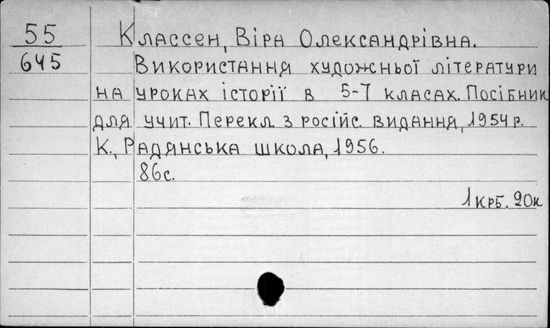 55 Классен, Віра Олександрівна.
645 Використання художньої літератури
на уроках історії в 5-7 класах. Посібник
для учит. Перекл. з російс. видання, 1954 р.
К., Радянська школа, 1956.
86с.
1 крб. 20к